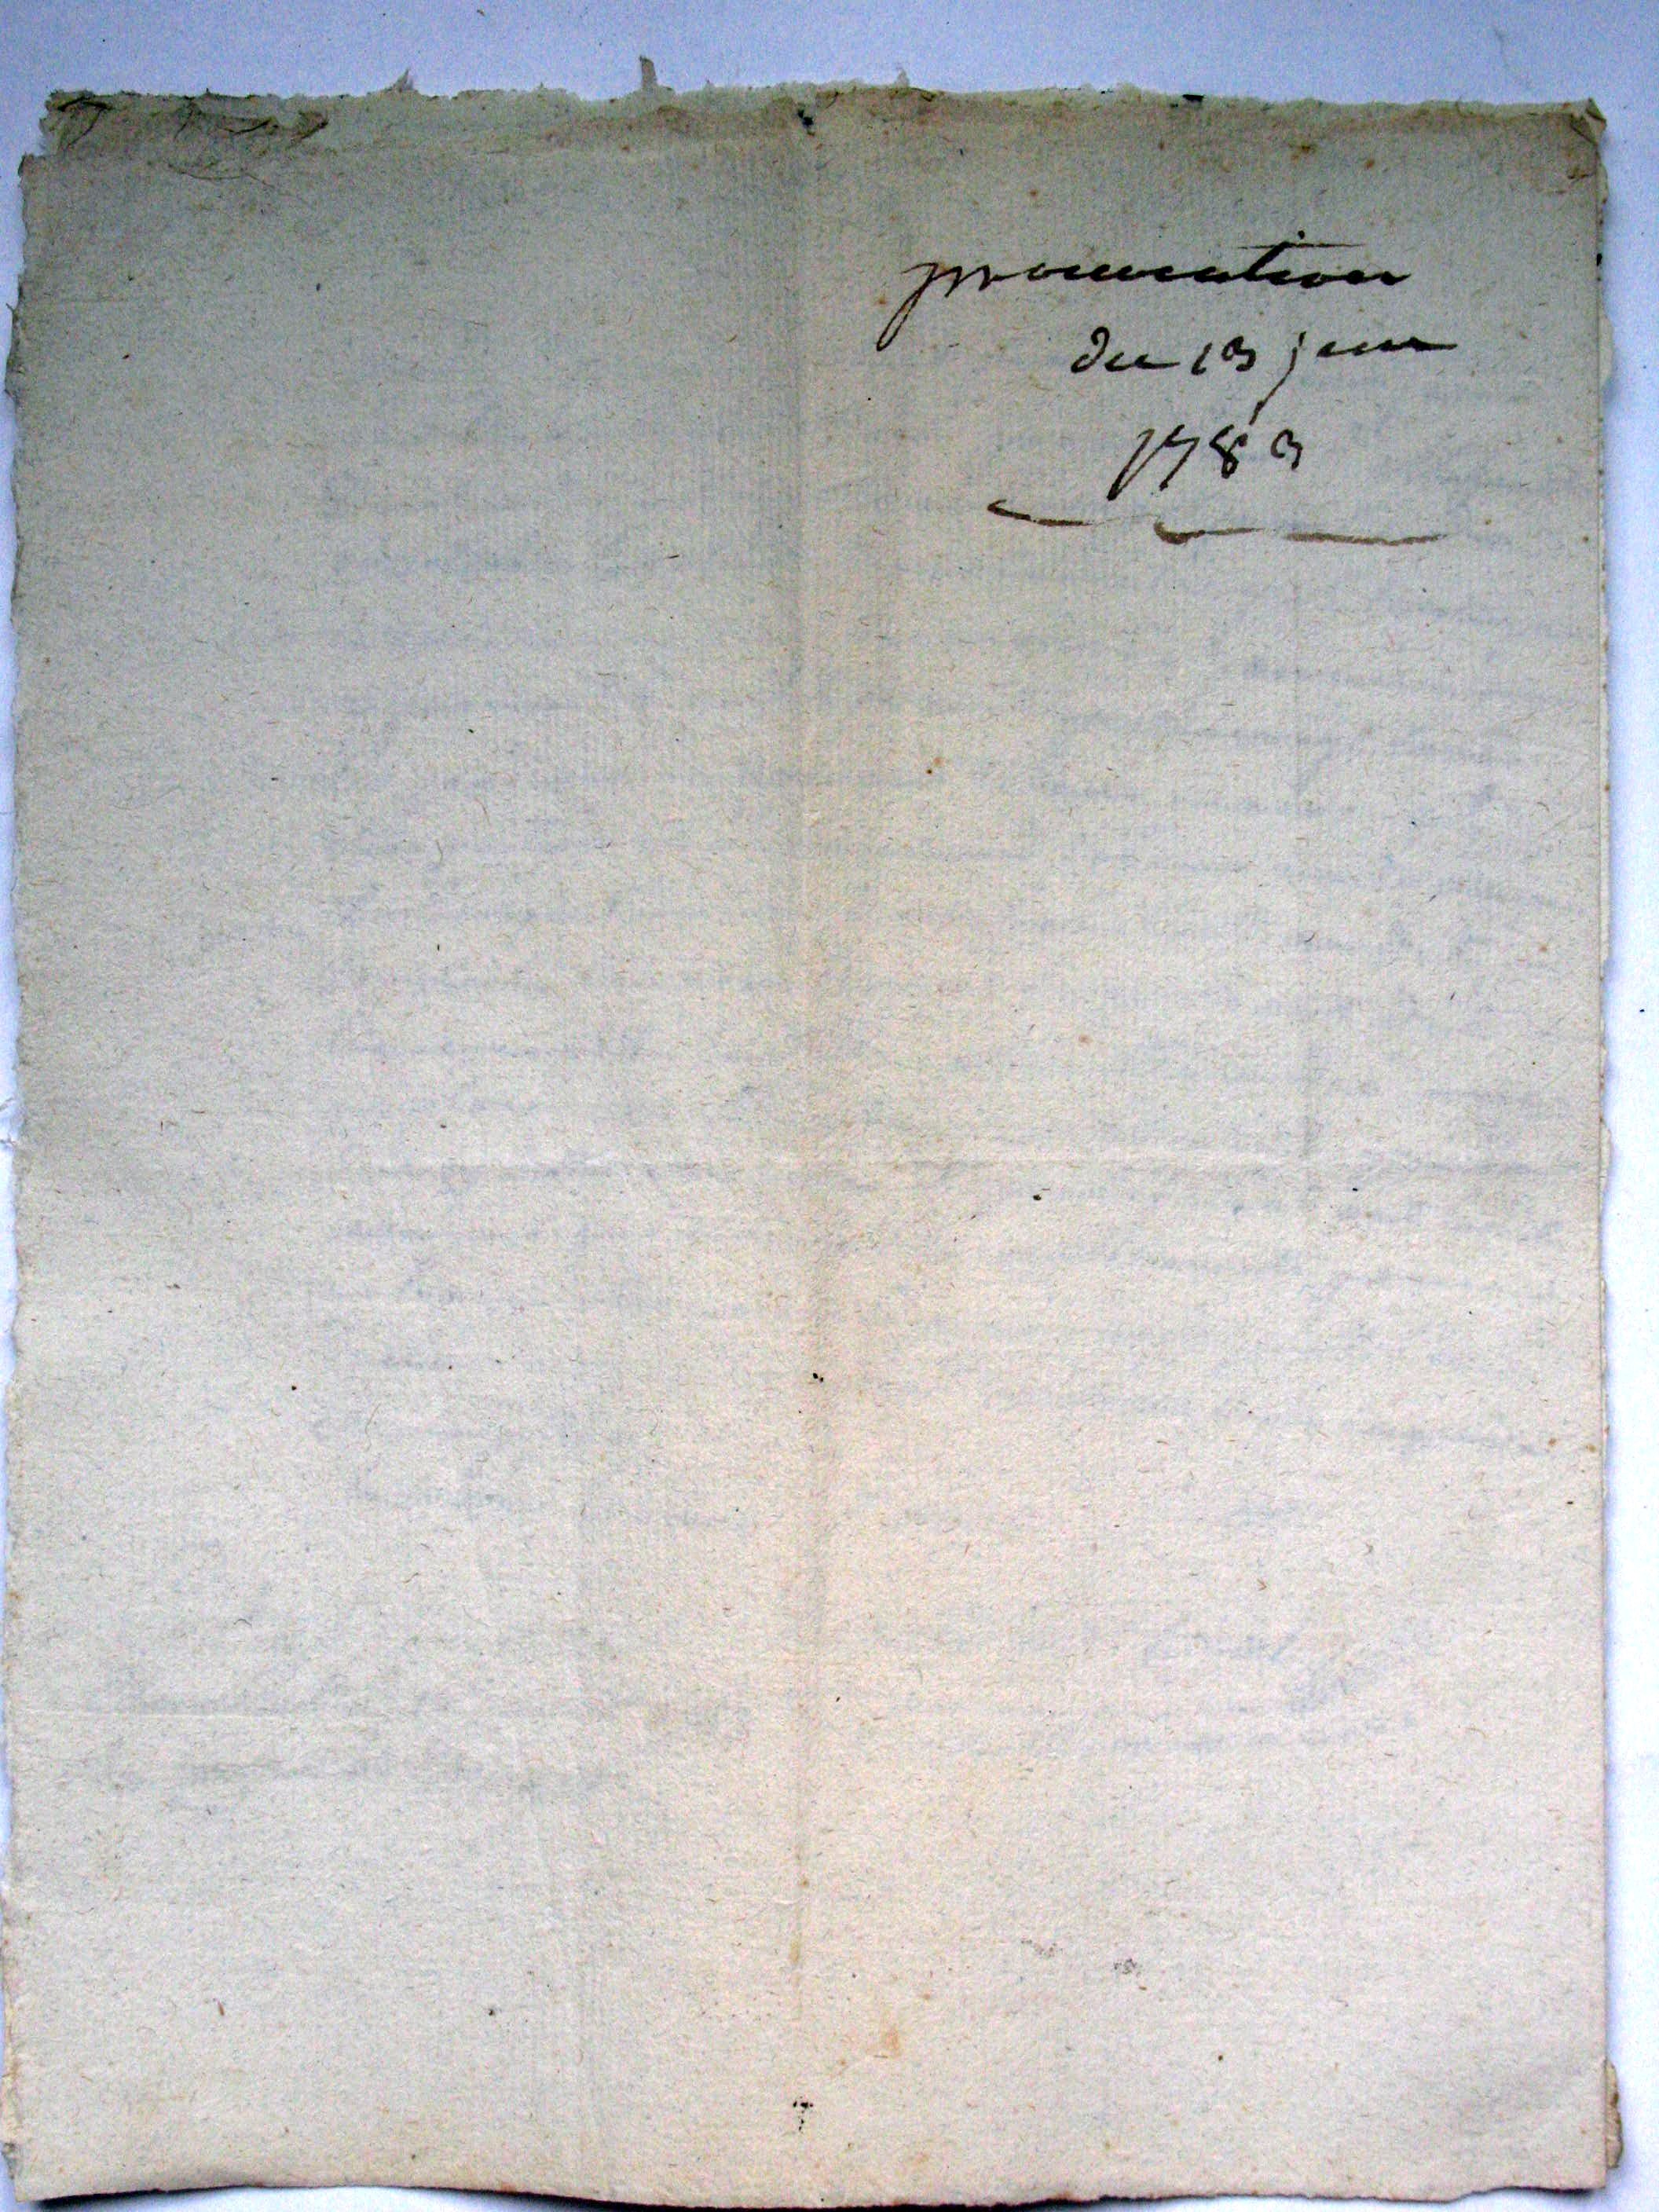 procuration
du 13 juin
1783